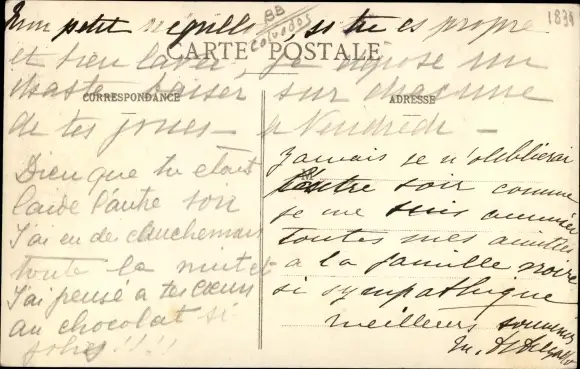 Mon petit négrillon si tu es propre
BB
Calvados
1839
CARTE POSTALE
et bien lavé, je dépose un
chaste baiser sur chacune
CORRESPONDANCE
ADRESSE
de tes joues — à Vendredi —
Dieu que tu étais
laide l'autre soir
J'ai eu des cauchemars
toute la nuit et
J'ai pensé à tes cœurs
au chocolat si
jolis!!!!
Jamais je n'oublierai
l'autre soir comme
je me suis amusée
toutes mes amitiés
à la famille noire
si sympathique
meilleurs souvenirs
M.